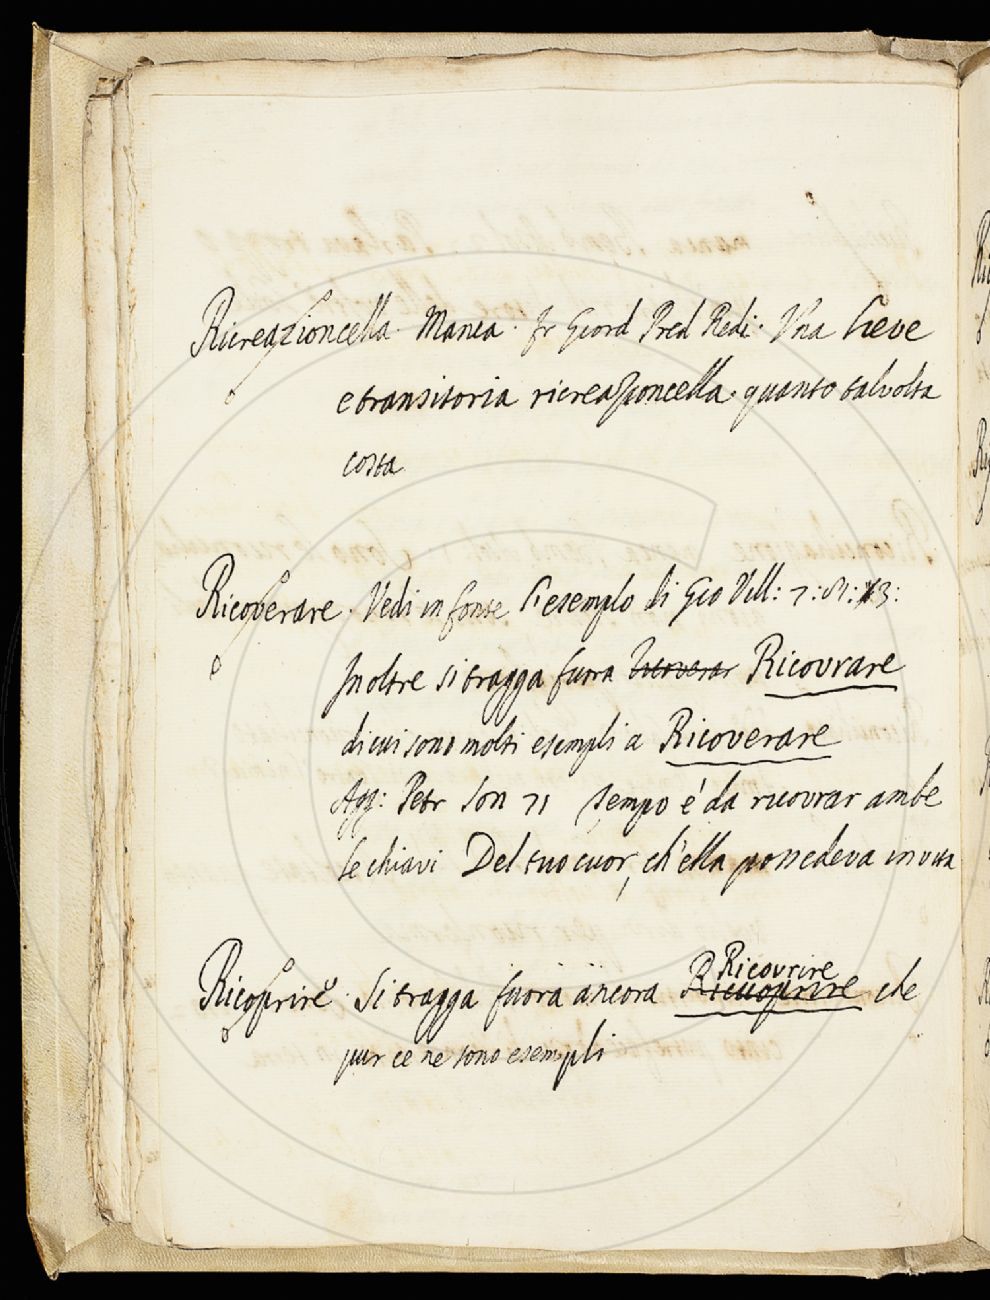 Ricreazioncella. Manca. Fr Giord Pred Redi. Una lieve
e transitoria ricreazioncella quanto talvolta
costa
Ricoperare. Vedi in fonte l'esemplo di Gio Vill: 7:
Inoltre si tragga fuora Ricovrare
di cui sono molti esempli a Ricoverare
Agg: Petr Son 71 Tempo è da ricovrar ambe
le chiavi Del tuo cuor, ch'ella possedeva in vita
Ricoprire. Si tragga fuora ancora Ricuoprire Ricovrire che
pur ce ne sono esempli